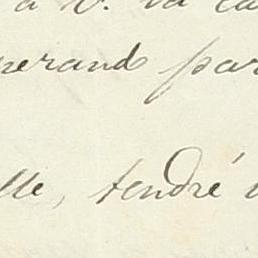 a V. va ca
nerand par
lle, tendré